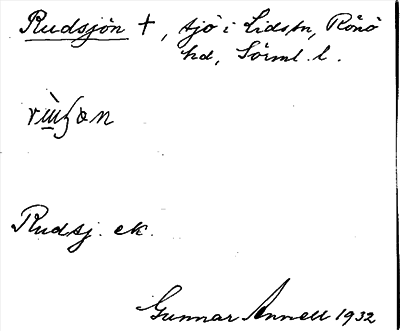 Rudsjön †, sjö i Lidsn, Rönö
hd, Sörml. l.
Rudsj. ek.
Gunnar Annell 1932